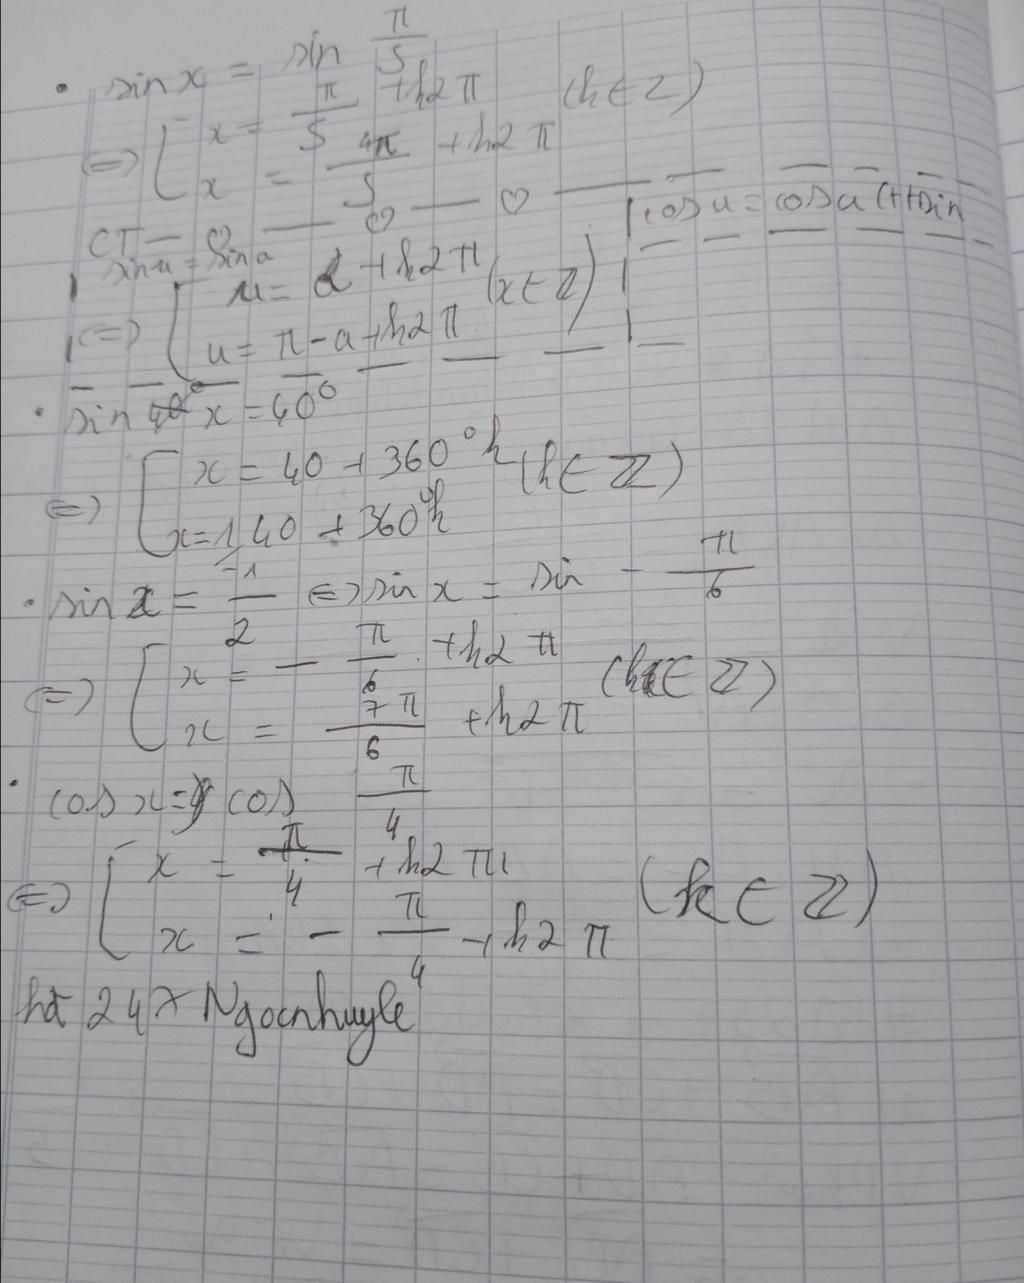 • sin x = sin π/5
⇔ [ x = π/5 + k2π (k ∈ Z)
x = 4π/5 + k2π
CT
sin u = sin a
cos u = cos a (++sin
⇔ [ u = α + k2π (x ∈ Z)
u = π - a + k2π
• sin x = 40°
⇔ [ x = 40 + 360°k (k ∈ Z)
x = 140 + 360°k
• sin x = -1/2 ⇔ sin x = sin - π/6
⇔ [ x = - π/6 + k2π (k ∈ Z)
x = 7π/6 + k2π
• cos x = cos π/4
⇔ [ x = π/4 + k2π (k ∈ Z)
x = - π/4 + k2π
247 Ngocnhuyle